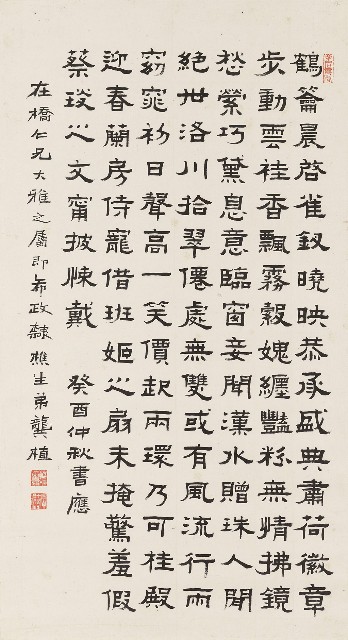 鶴籥晨啓雀釵曉映恭承盛典肅荷徽章
步動雲袿香飄霧縠媿纏豔粉無情拂鏡
愁縈巧黛息意臨窗妾聞漢水贈珠人聞
絕世洛川拾翠僊處無雙或有風流行雨
窈窕初日聲高一笑價起兩環乃可桂殿
迎春蘭房侍寵借班姬之扇未掩驚羞假
蔡琰之文甯披悚戴 癸酉仲秋書應
在橋仁兄大雅之屬即希政隸樵生弟龔植